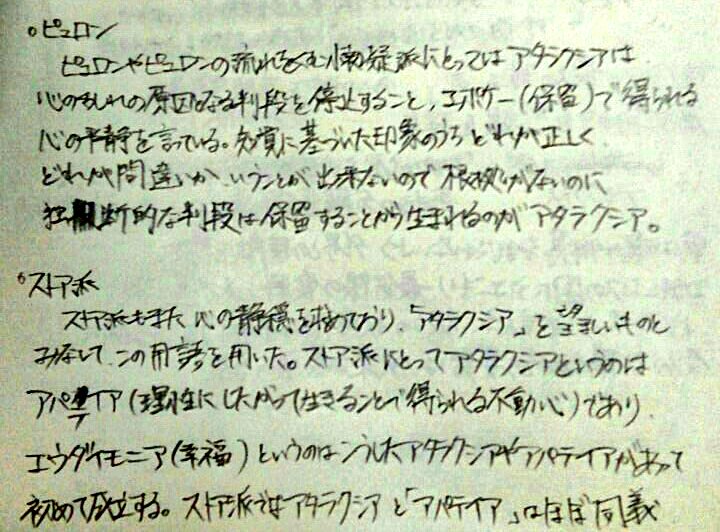 。ピュロン
ピュロンやピュロンの流れをくむ懐疑派にとってはアタラクシアは、
心のみだれの原因となる判段を停止すること、エポケー(保留)で得られる
心の平静を言っている。知覚に基づいた印象のうちどれが正しく、
どれが間違いか、いうことが出来ないので根拠がないのに
独断的な判段は保留することから生まれるのがアタラクシア。
。ストア派
ストア派もまた心の静穏を求めており、「アタラクシア」を望ましいものと
みなして、この用語を用いた。ストア派にとってアタラクシアというのは
アパテイア(理性にしたがって生きることで得られる不動心)であり、
エウダイモニア(幸福)というのはこうしたアタラクシアやアパテイアがあって
初めて成立する。ストア派ではアタラクシアと「アパテイア」はほぼ同義